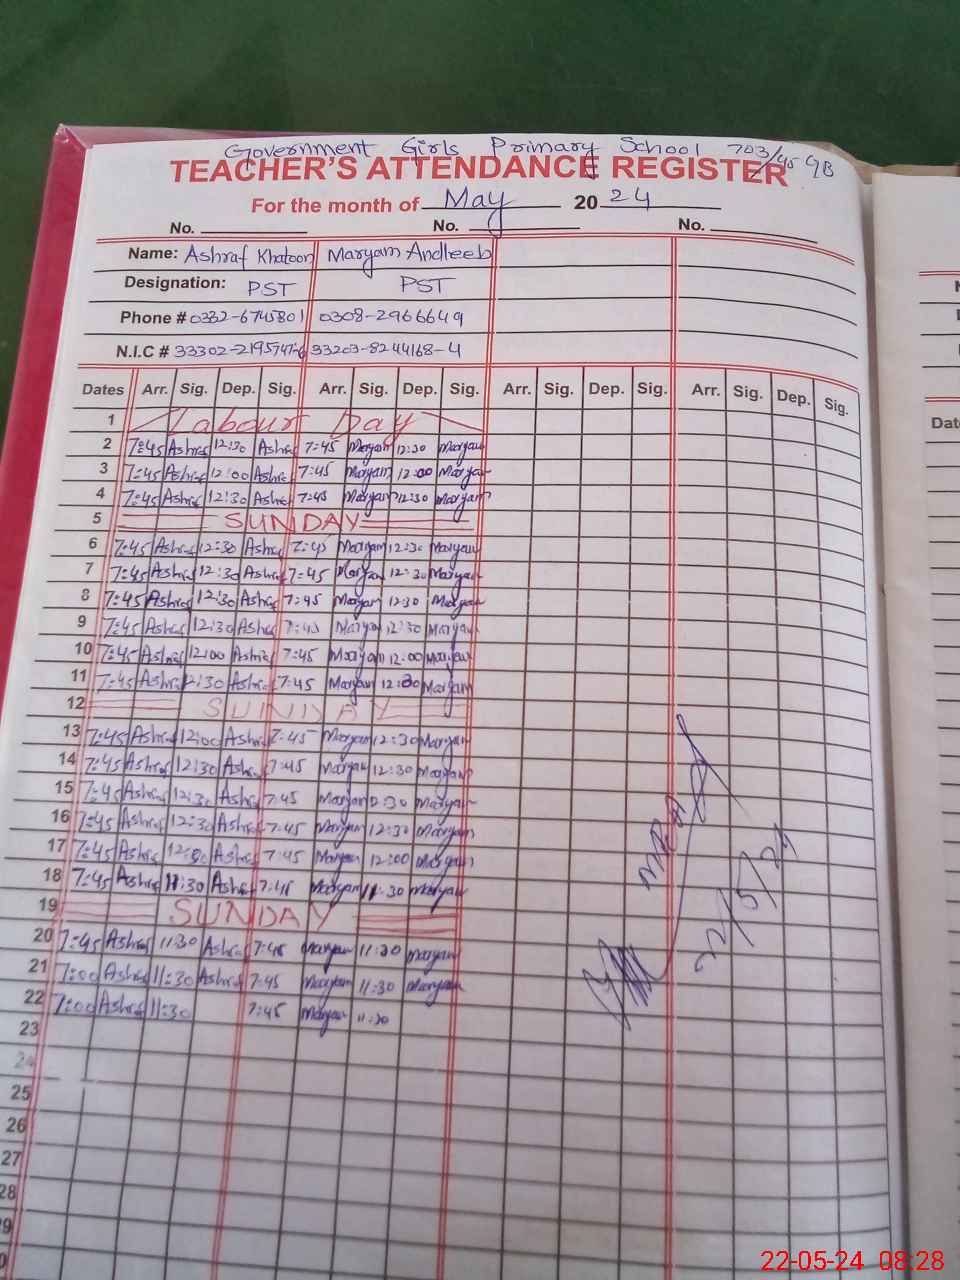 Government Girls Primary School 703/45 GB
TEACHER'S ATTENDANCE REGISTER
For the month of May 20 24
No. No. No.
Name: Ashraf Khatoon Maryam Andleeb
Designation: PST PST
Phone # 0332-6745801 0308-2966649
N.I.C # 33302-2195747-6 33203-8244168-4
Dates Arr. Sig. Dep. Sig. Arr. Sig. Dep. Sig. Arr. Sig. Dep. Sig. Arr. Sig. Dep. Sig.
1 Labour Day
2 7:45 Ashraf 12:30 Ashraf 7:45 Maryam 12:30 Maryam
3 7:45 Ashraf 12:00 Ashraf 7:45 Maryam 12:00 Maryam
4 7:45 Ashraf 12:30 Ashraf 7:45 Maryam 12:30 Maryam
5 SUNDAY
6 7:45 Ashraf 12:30 Ashraf 7:45 Maryam 12:30 Maryam
7 7:45 Ashraf 12:30 Ashraf 7:45 Maryam 12:30 Maryam
8 7:45 Ashraf 12:30 Ashraf 7:45 Maryam 12:30 Maryam
9 7:45 Ashraf 12:30 Ashraf 7:45 Maryam 12:30 Maryam
10 7:45 Ashraf 12:00 Ashraf 7:45 Maryam 12:00 Maryam
11 7:45 Ashraf 12:30 Ashraf 7:45 Maryam 12:30 Maryam
12 SUNDAY
13 7:45 Ashraf 12:00 Ashraf 7:45 Maryam 12:30 Maryam
14 7:45 Ashraf 12:30 Ashraf 7:45 Maryam 12:30 Maryam
15 7:45 Ashraf 12:30 Ashraf 7:45 Maryam 12:30 Maryam
16 7:45 Ashraf 12:30 Ashraf 7:45 Maryam 12:30 Maryam
17 7:45 Ashraf 12:00 Ashraf 7:45 Maryam 12:00 Maryam
18 7:45 Ashraf 11:30 Ashraf 7:45 Maryam 11:30 Maryam
19 SUNDAY
20 7:45 Ashraf 11:30 Ashraf 7:45 Maryam 11:30 Maryam
21 7:00 Ashraf 11:30 Ashraf 7:45 Maryam 11:30 Maryam
22 7:00 Ashraf 11:30 7:45 Maryam 11:30
23
24
25
26
27
28
22/5/24
Dat
22-05-24 08:28